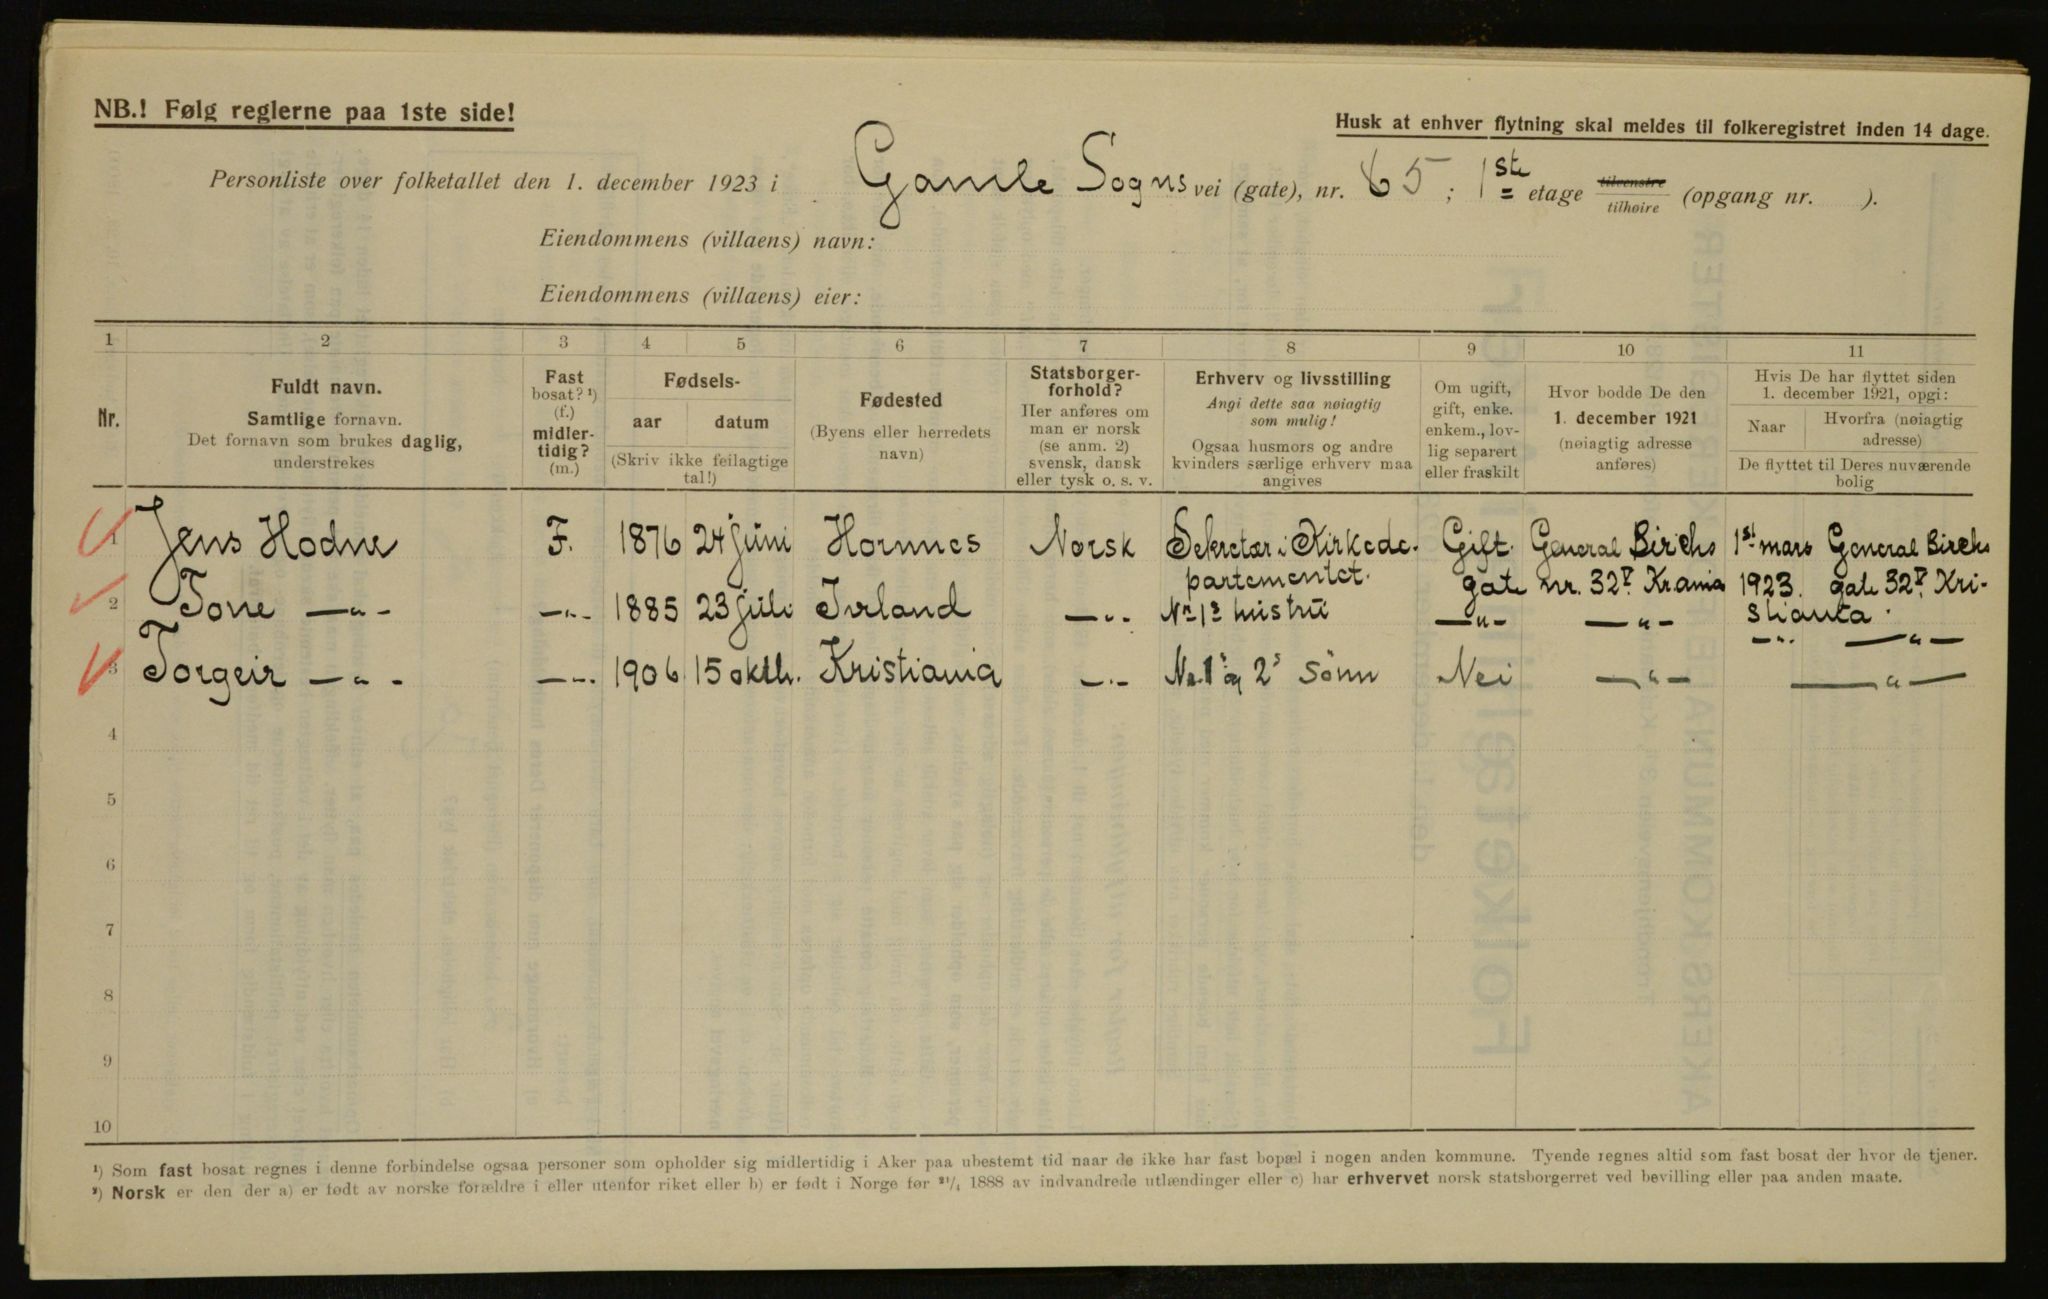 NB.! Følg reglerne paa 1ste side!
Husk at enhver flytning skal meldes til folkeregistret inden 14 dage.
Personliste over folketallet den 1. december 1923 i Gamle Sogns vei (gate), nr. 65; 1ste etage tilvenstre tilhøire (opgang nr. ).
Eiendommens (villaens) navn:
Eiendommens (villaens) eier:
1 2 3 4 5 6 7 8 9 10 11
Nr.
Fuldt navn.
Samtlige fornavn.
Det fornavn som brukes daglig,
understrekes
Fast
bosat? ¹)
(f.)
midler-
tidig?
(m.)
Fødsels-
aar datum
(Skriv ikke feilagtige
tal!)
Fødested
(Byens eller herredets
navn)
Statsborger-
forhold?
Her anføres om
man er norsk
(se anm. 2)
svensk, dansk
eller tysk o. s. v.
Erhverv og livsstilling
Angi dette saa nøiagtig
som mulig!
Ogsaa husmors og andre
kvinders særlige erhverv maa
angives
Om ugift,
gift, enke.
enkem., lov-
lig separert
eller fraskilt
Hvor bodde De den
1. december 1921
(nøiagtig adresse
anføres)
Hvis De har flyttet siden
1. december 1921, opgi:
Naar Hvorfra (nøiagtig
adresse)
De flyttet til Deres nuværende
bolig
1 Jens Hodne F. 1876 24 juni Hornnes Norsk Sekretær i Kirkede- Gift. General Birchs 1st mars General Birchs
partementet. gate nr. 32V Krania 1923. gate 32V. Kri-
2 Tone —„— —„— 1885 23 juli Iveland —„— Nr 1s hustru —„— —„— stiania.
—„— —„—
3 Torgeir —„— —„— 1906 15 oktb. Kristiania —„— Nr. 1s og 2s sønn Nei —„— —„—
4
5
6
7
8
9
10
¹) Som fast bosat regnes i denne forbindelse ogsaa personer som opholder sig midlertidig i Aker paa ubestemt tid naar de ikke har fast bopæl i nogen anden kommune. Tyende regnes altid som fast bosat der hvor de tjener.
²) Norsk er den der a) er født av norske forældre i eller utenfor riket eller b) er født i Norge før ²¹/₄ 1888 av indvandrede utlændinger eller c) har erhvervet norsk statsborgerret ved bevilling eller paa anden maate.